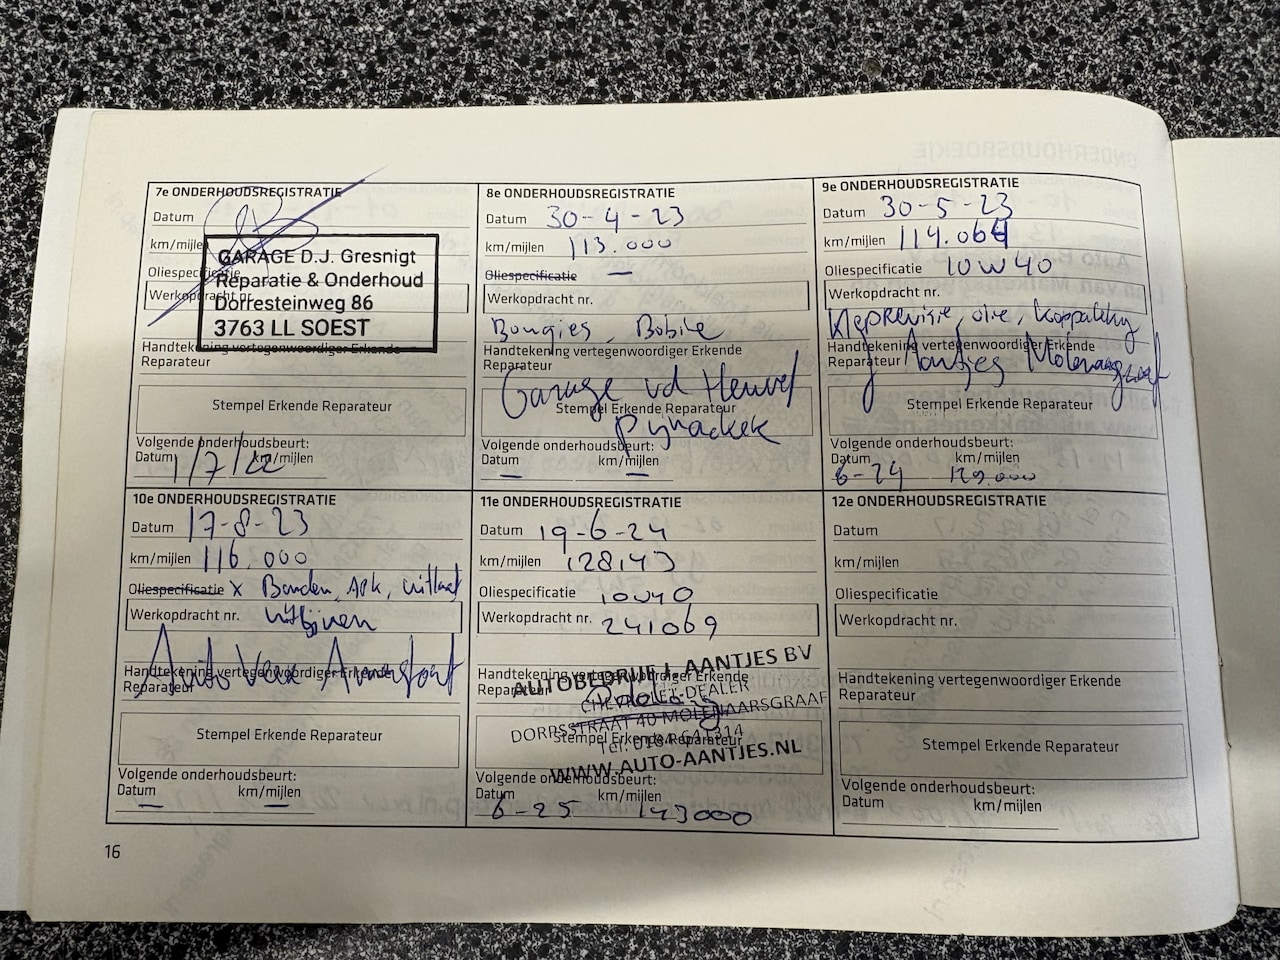 7e ONDERHOUDSREGISTRATIE
Datum
km/mijlen
Oliespecificatie
Werkopdracht nr.
GARAGE D.J. Gresnigt
Reparatie & Onderhoud
Dorresteinweg 86
3763 LL SOEST
Handtekening vertegenwoordiger Erkende
Reparateur
Stempel Erkende Reparateur
Volgende onderhoudsbeurt:
Datum km/mijlen
1/7/22
8e ONDERHOUDSREGISTRATIE
Datum 30-4-23
km/mijlen 113.000
Oliespecificatie —
Werkopdracht nr.
Bougies, Bobine
Handtekening vertegenwoordiger Erkende
Reparateur
Garage vd Heuvel
Stempel Erkende Reparateur
Pijnacker
Volgende onderhoudsbeurt:
Datum — km/mijlen —
9e ONDERHOUDSREGISTRATIE
Datum 30-5-23
km/mijlen 114.064
Oliespecificatie 10W40
Werkopdracht nr.
Kleprevisie, olie, koppakking
Handtekening vertegenwoordiger Erkende
Reparateur Aantjes Molenaarsgraaf
Stempel Erkende Reparateur
Volgende onderhoudsbeurt:
Datum km/mijlen
6-24 129.000
10e ONDERHOUDSREGISTRATIE
Datum 17-8-23
km/mijlen 116.000
Oliespecificatie x Banden, APK, uitlaat
Werkopdracht nr. uitlijnen
Auto Amersfoort
Handtekening vertegenwoordiger Erkende
Reparateur
Stempel Erkende Reparateur
Volgende onderhoudsbeurt:
Datum — km/mijlen —
11e ONDERHOUDSREGISTRATIE
Datum 19-6-24
km/mijlen 128143
Oliespecificatie 10W40
Werkopdracht nr. 241069
Handtekening vertegenwoordiger Erkende
Reparateur
AUTOBEDRIJF J. AANTJES BV
CHEVROLET-DEALER
DORPSSTRAAT 40 MOLENAARSGRAAF
Tel. 0184-641314
Stempel Erkende Reparateur
WWW.AUTO-AANTJES.NL
Volgende onderhoudsbeurt:
Datum km/mijlen
6-25 143000
12e ONDERHOUDSREGISTRATIE
Datum
km/mijlen
Oliespecificatie
Werkopdracht nr.
Handtekening vertegenwoordiger Erkende
Reparateur
Stempel Erkende Reparateur
Volgende onderhoudsbeurt:
Datum km/mijlen
16